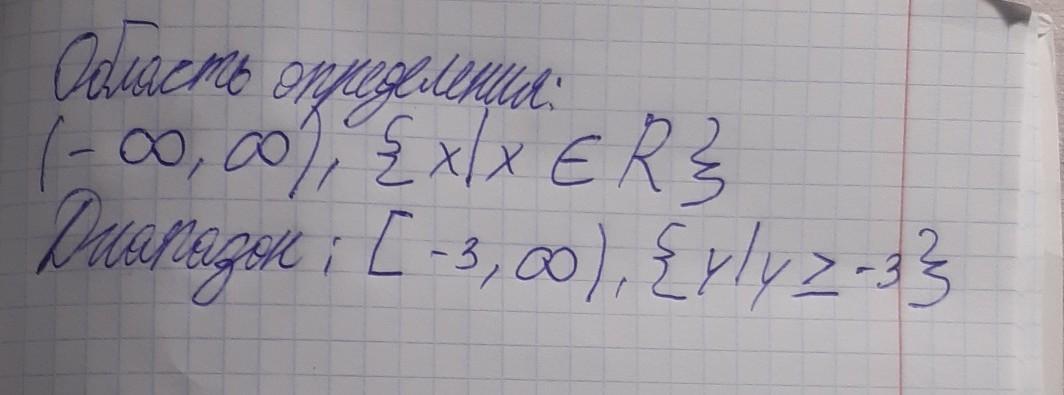 Область определения:
(-∞, ∞), {x|x ∈ R}
Диапазон: [-3, ∞), {y|y ≥ -3}